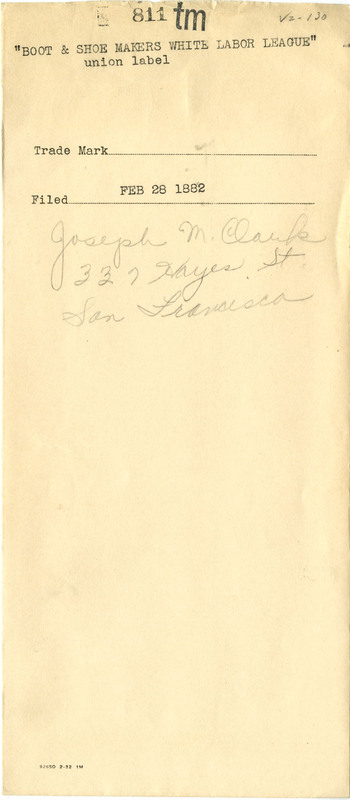 811 tm V2-120
"BOOT & SHOE MAKERS WHITE LABOR LEAGUE"
union label
Trade Mark
Filed FEB 28 1882
Joseph M. Clark
337 Hayes St
San Francisco
2-32 1M